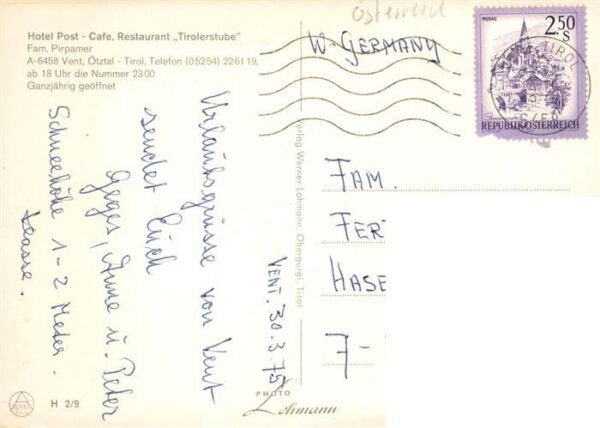 Österreich
Hotel Post - Cafe, Restaurant „Tirolerstube"
Fam. Pirpamer
A-6458 Vent, Ötztal - Tirol, Telefon (05254) 2261 19,
ab 18 Uhr die Nummer 23 00
Ganzjährig geöffnet
W. GERMANY
MURAU
2.50
S
REPUBLIK ÖSTERREICH
TIROL
Urlaubsgrüsse von Vent
sendet Euch
Anne u. Peter
Schneehöhe 1-2 Meter.
VENT. 30.3.75
Verlag Werner Lohmann, Obergurgl, Tirol
FAM.
FER
HASE
7-
H 2/9
PHOTO
Lohmann